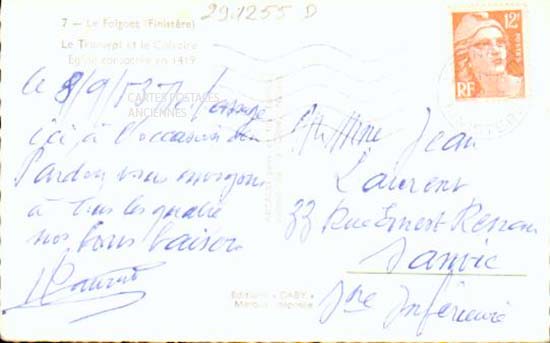 29.1255 D
7 - Le Folgoet (Finistère)
Le Transept et le Calvaire
Église consacrée en 1419
12F
POSTES
RF
Le 8/9/52
CARTES POSTALES
ANCIENNES
ici à l'occasion du
Pardon vous envoyons
à tous les quatre
nos bons baisers
Laurent
Mme Jean
Laurent
33 Rue Ernest Renan
Sanvic
Sne Inférieure
Editions « GABY »
Marque déposée